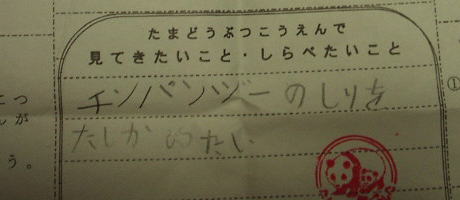 たまどうぶつこうえんで
見てきたいこと・しらべたいこと
チンパンジーのしりを
たしかめたい
①
こつ
んが
う。